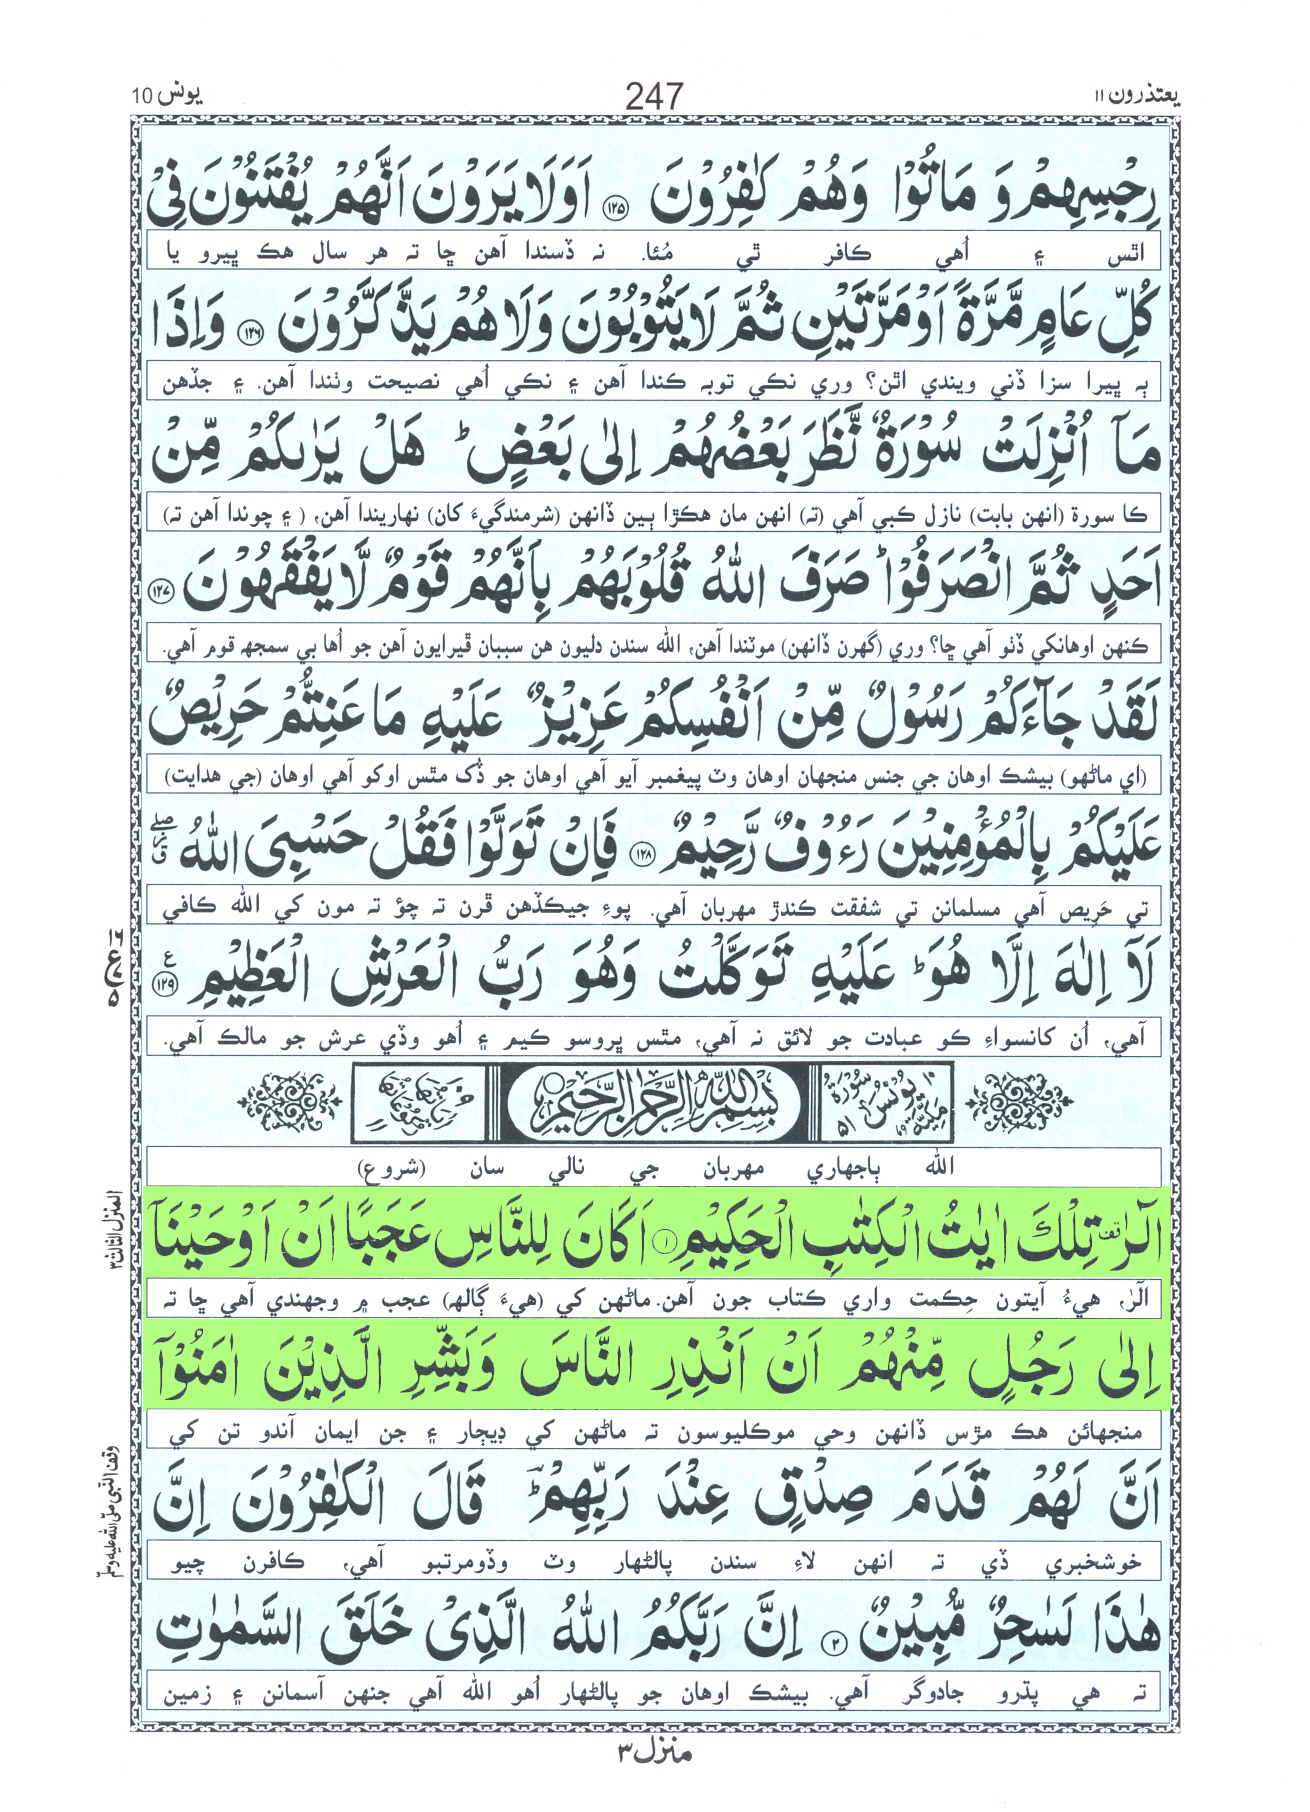 يعتذرون ۱۱ 247 يونس 10
رِجۡسِهِمۡ وَ مَاتُوۡا وَهُمۡ كٰفِرُوۡنَ ۝۱۲۵ اَوَلَا يَرَوۡنَ اَنَّهُمۡ يُفۡتَنُوۡنَ فِىۡ
اٿس ۽ اُهي ڪافر ٿي مُئا. نہ ڏسندا آهن ڇا تہ هر سال هڪ ڀيرو يا
كُلِّ عَامٍ مَّرَّةً اَوۡ مَرَّتَيۡنِ ثُمَّ لَا يَتُوۡبُوۡنَ وَلَا هُمۡ يَذَّكَّرُوۡنَ ۝۱۲۶ وَاِذَا
ٻہ ڀيرا سزا ڏني ويندي اٿن؟ وري نڪي توبہ ڪندا آهن ۽ نڪي اُهي نصيحت وٺندا آهن. ۽ جڏهن
مَاۤ اُنۡزِلَتۡ سُوۡرَةٌ نَّظَرَ بَعۡضُهُمۡ اِلٰى بَعۡضٍؕ هَلۡ يَرٰٮكُمۡ مِّنۡ
ڪا سورة (انهن بابت) نازل ڪبي آهي (تہ) انهن مان هڪڙا ٻين ڏانهن (شرمندگيءَ کان) نهاريندا آهن، ( ۽ چوندا آهن تہ)
اَحَدٍ ثُمَّ انۡصَرَفُوۡاؕ صَرَفَ اللّٰهُ قُلُوۡبَهُمۡ بِاَنَّهُمۡ قَوۡمٌ لَّا يَفۡقَهُوۡنَ ۝۱۲۷
ڪنهن اوهانکي ڏٺو آهي ڇا؟ وري (گهرن ڏانهن) موٽندا آهن، الله سندن دليون هن سببان ڦيرايون آهن جو اُها بي سمجھ قوم آهي.
لَقَدۡ جَآءَكُمۡ رَسُوۡلٌ مِّنۡ اَنۡفُسِكُمۡ عَزِيۡزٌ عَلَيۡهِ مَا عَنِتُّمۡ حَرِيۡصٌ
(اي ماڻهو) بيشڪ اوهان جي جنس منجهان اوهان وٽ پيغمبر آيو آهي اوهان جو ڏُک مٿس اوکو آهي اوهان (جي هدايت)
عَلَيۡكُمۡ بِالۡمُؤۡمِنِيۡنَ رَءُوۡفٌ رَّحِيۡمٌ ۝۱۲۸ فَاِنۡ تَوَلَّوۡا فَقُلۡ حَسۡبِىَ اللّٰهُ
تي حَرِيص آهي مسلمانن تي شفقت ڪندڙ مهربان آهي. پوءِ جيڪڏهن ڦرن تہ چؤ تہ مون کي الله ڪافي
لَاۤ اِلٰهَ اِلَّا هُوَؕ عَلَيۡهِ تَوَكَّلۡتُ وَهُوَ رَبُّ الۡعَرۡشِ الۡعَظِيۡمِ ۝۱۲۹
آهي، اُن کانسواءِ ڪو عبادت جو لائق نہ آهي، مٿس ڀروسو ڪيم ۽ اُهو وڏي عرش جو مالڪ آهي.
۱۰ سُوۡرَةُ يُوۡنُسَ مَكِّيَّةٌ ۵۱ بِسۡمِ اللّٰهِ الرَّحۡمٰنِ الرَّحِيۡمِ
الله ٻاجهاري مهربان جي نالي سان (شروع)
الٓرٰ تِلۡكَ اٰيٰتُ الۡكِتٰبِ الۡحَكِيۡمِ ۝۱ اَكَانَ لِلنَّاسِ عَجَبًا اَنۡ اَوۡحَيۡنَاۤ
الٓرٰ، هيءُ آيتون حِڪمت واري ڪتاب جون آهن. ماڻهن کي (هيءَ ڳالھ) عجب ۾ وجهندي آهي ڇا تہ
اِلٰى رَجُلٍ مِّنۡهُمۡ اَنۡ اَنۡذِرِ النَّاسَ وَبَشِّرِ الَّذِيۡنَ اٰمَنُوۡۤا
منجهائن هڪ مڙس ڏانهن وحي موڪليوسون تہ ماڻهن کي ڊيڄار ۽ جن ايمان آندو تن کي
اَنَّ لَهُمۡ قَدَمَ صِدۡقٍ عِنۡدَ رَبِّهِمۡؔؕ قَالَ الۡكٰفِرُوۡنَ اِنَّ
خوشخبري ڏي تہ انهن لاءِ سندن پالڻهار وٽ وڏومرتبو آهي، ڪافرن چيو
هٰذَا لَسٰحِرٌ مُّبِيۡنٌ ۝۲ اِنَّ رَبَّكُمُ اللّٰهُ الَّذِىۡ خَلَقَ السَّمٰوٰتِ
تہ هي پڌرو جادوگر آهي. بيشڪ اوهان جو پالڻهار اُهو الله آهي جنهن آسمانن ۽ زمين
منزل ۳
المنزل الثالث ۳
وقف النبی صلی اللہ علیہ وسلم